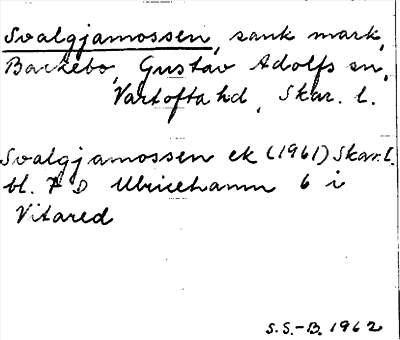 Svalgjamossen, sank mark,
Backebo, Gustav Adolfs sn,
Vartofta hd, Skar. l.
Svalgjamossen ek (1961) Skar. l.
bl. 7 D Ulricehamn 6 i
Vitared
S.S.-B. 1962